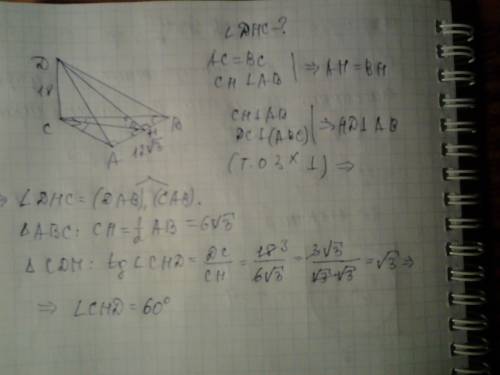 ∠DHC-?
AC=BC
CH⊥AB | ⇒ AH=BH
CH⊥AB
DC⊥(ABC) | ⇒ HD⊥AB
(Т.О 3х ⊥) ⇒
D
18
C
H
B
A
12√3
⇒ ∠DHC=(DAB),(CAB).
ΔABC: CH=½AB=6√3
ΔCDH: tg∠CHD=DC/CH=18³/6√3=3√3/√3·√3=√3 ⇒
⇒ ∠CHD=60°